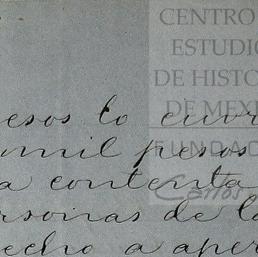 CENTRO
ESTUDIO
DE HISTO
DE MEXI
FUNDAC
Carlos
esos lo cuor
mil pesos
a contenta
ersonas de la
echo a aper